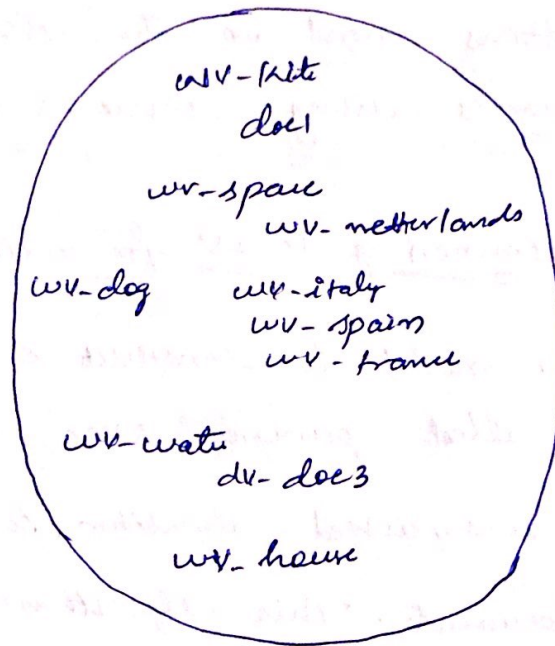 wv-kite
doc1
wv-space
wv-netherlands
wv-dog wv-italy
wv-spain
wv-france
wv-water
dv-doc3
wv-house